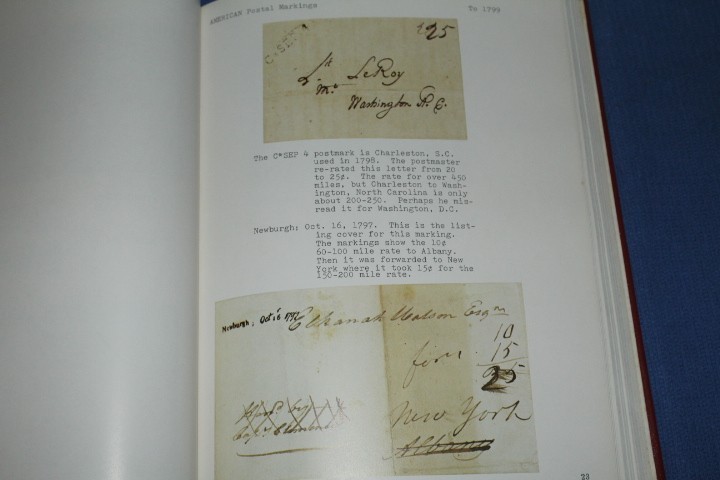 AMERICAN Postal Markings To 1799
C*SEP
25
Lt LeRoy
Mr.
Washington N. C.
The C*SEP 4 postmark is Charleston, S.C.
used in 1798. The postmaster
re-rated this letter from 20
to 25¢. The rate for over 450
miles, but Charleston to Wash-
ington, North Carolina is only
about 200-250. Perhaps he mis-
read it for Washington, D.C.
Newburgh; Oct. 16, 1797. This is the list-
ing cover for this marking.
The markings show the 10¢
60-100 mile rate to Albany.
Then it was forwarded to New
York where it took 15¢ for the
150-200 mile rate.
Newburgh, Oct 16 1797 Elkanah Watson Esqr
10
15
25
New York
Albany
23